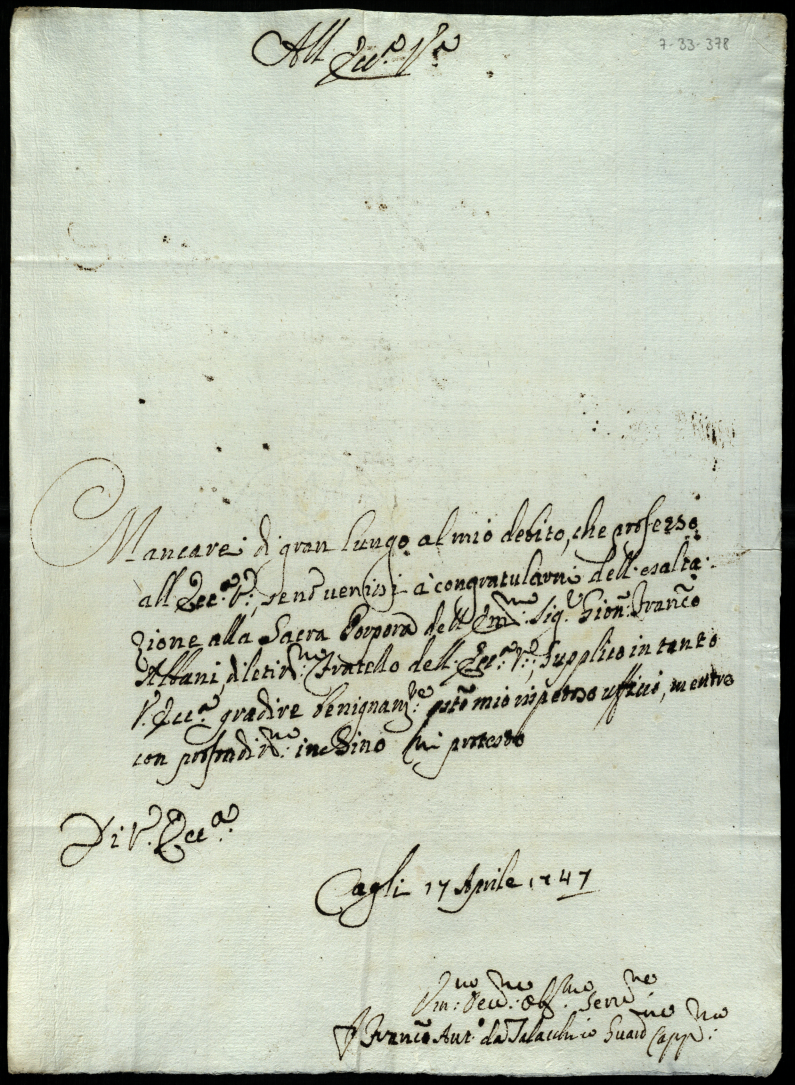 All Ecc.ª V.ª
7-33-378
Mancarei di gran lungo al mio debito, che professo
all Ecc.ª V.ª, se non venissi à congratularmi dell'esalta-
zione alla Sacra Porpora dell Em.mo Sig.r Gion: Franco
Albani, diletis.mo Fratello dell Ecc.ª V.ª; Supplico intanto
V. Ecc.ª gradire benignam.te q.sto mio rispettoso ufficio, mentre
con profondis.mo inchino mi protesto
Di V. Ecc.ª
Cagli 17 Aprile 1747
Um.mo Dev.mo Obl.mo Serv.re
F. Franco Ant.º da Talacchio Guard.no Capp.no